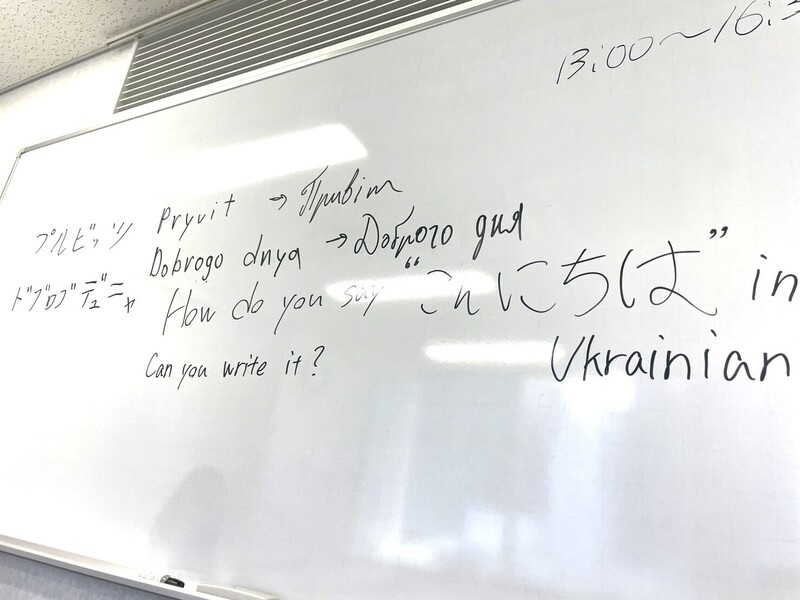 13:00~16:3
プルビッツ Pryvit → Привіт
ドブロブデュニャ Dobrogo dnya → Доброго дня
How do you say “こんにちは” in
Ukrainian
Can you write it?